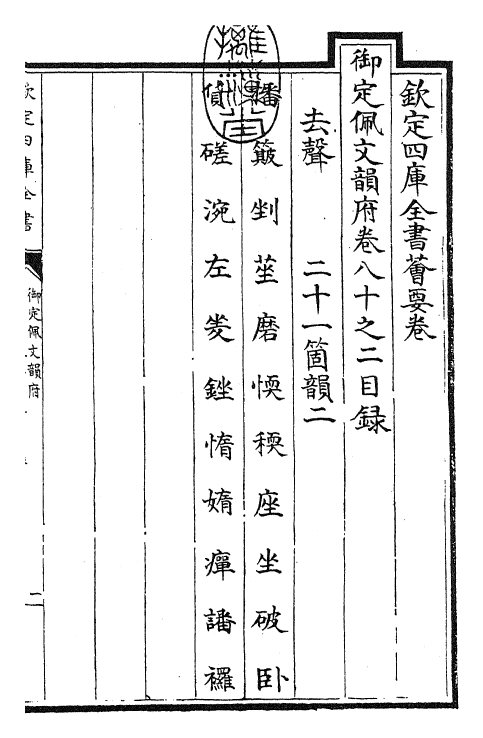 欽定四庫全書薈要卷
御定佩文韻府卷八十之二目録
去聲 二十一箇韻二
播 簸 剉 莝 磨 愞 稬 座 坐 破 卧
貨 磋 涴 左 夎 銼 惰 媠 癉 譒 襬
欽定四庫全書
御定佩文韻府
二